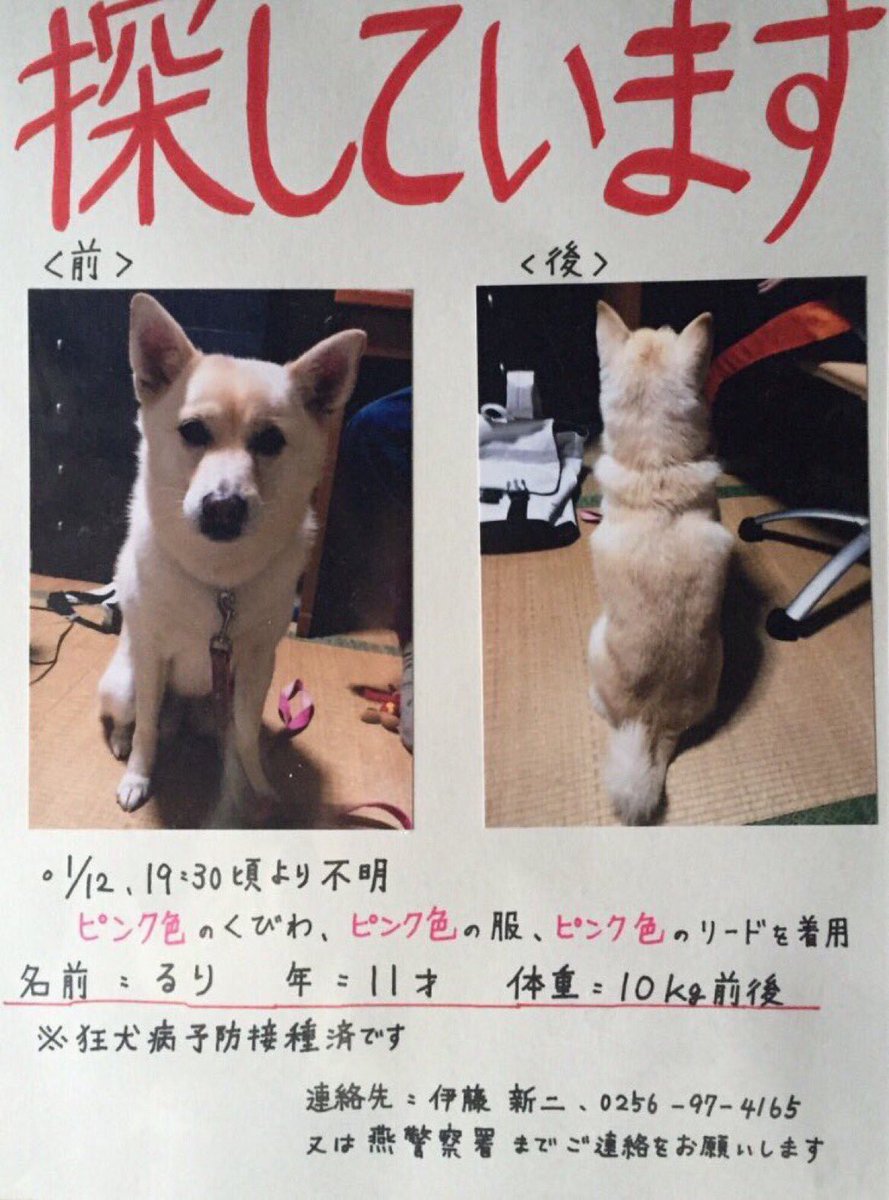 探しています
＜前＞ ＜後＞
○1/12、19:30頃より不明
ピンク色のくびわ、ピンク色の服、ピンク色のリードを着用
名前:るり 年:11才 体重:10kg前後
※狂犬病予防接種済です
連絡先:伊藤 新二、0256-97-4165
又は燕警察署までご連絡をお願いします